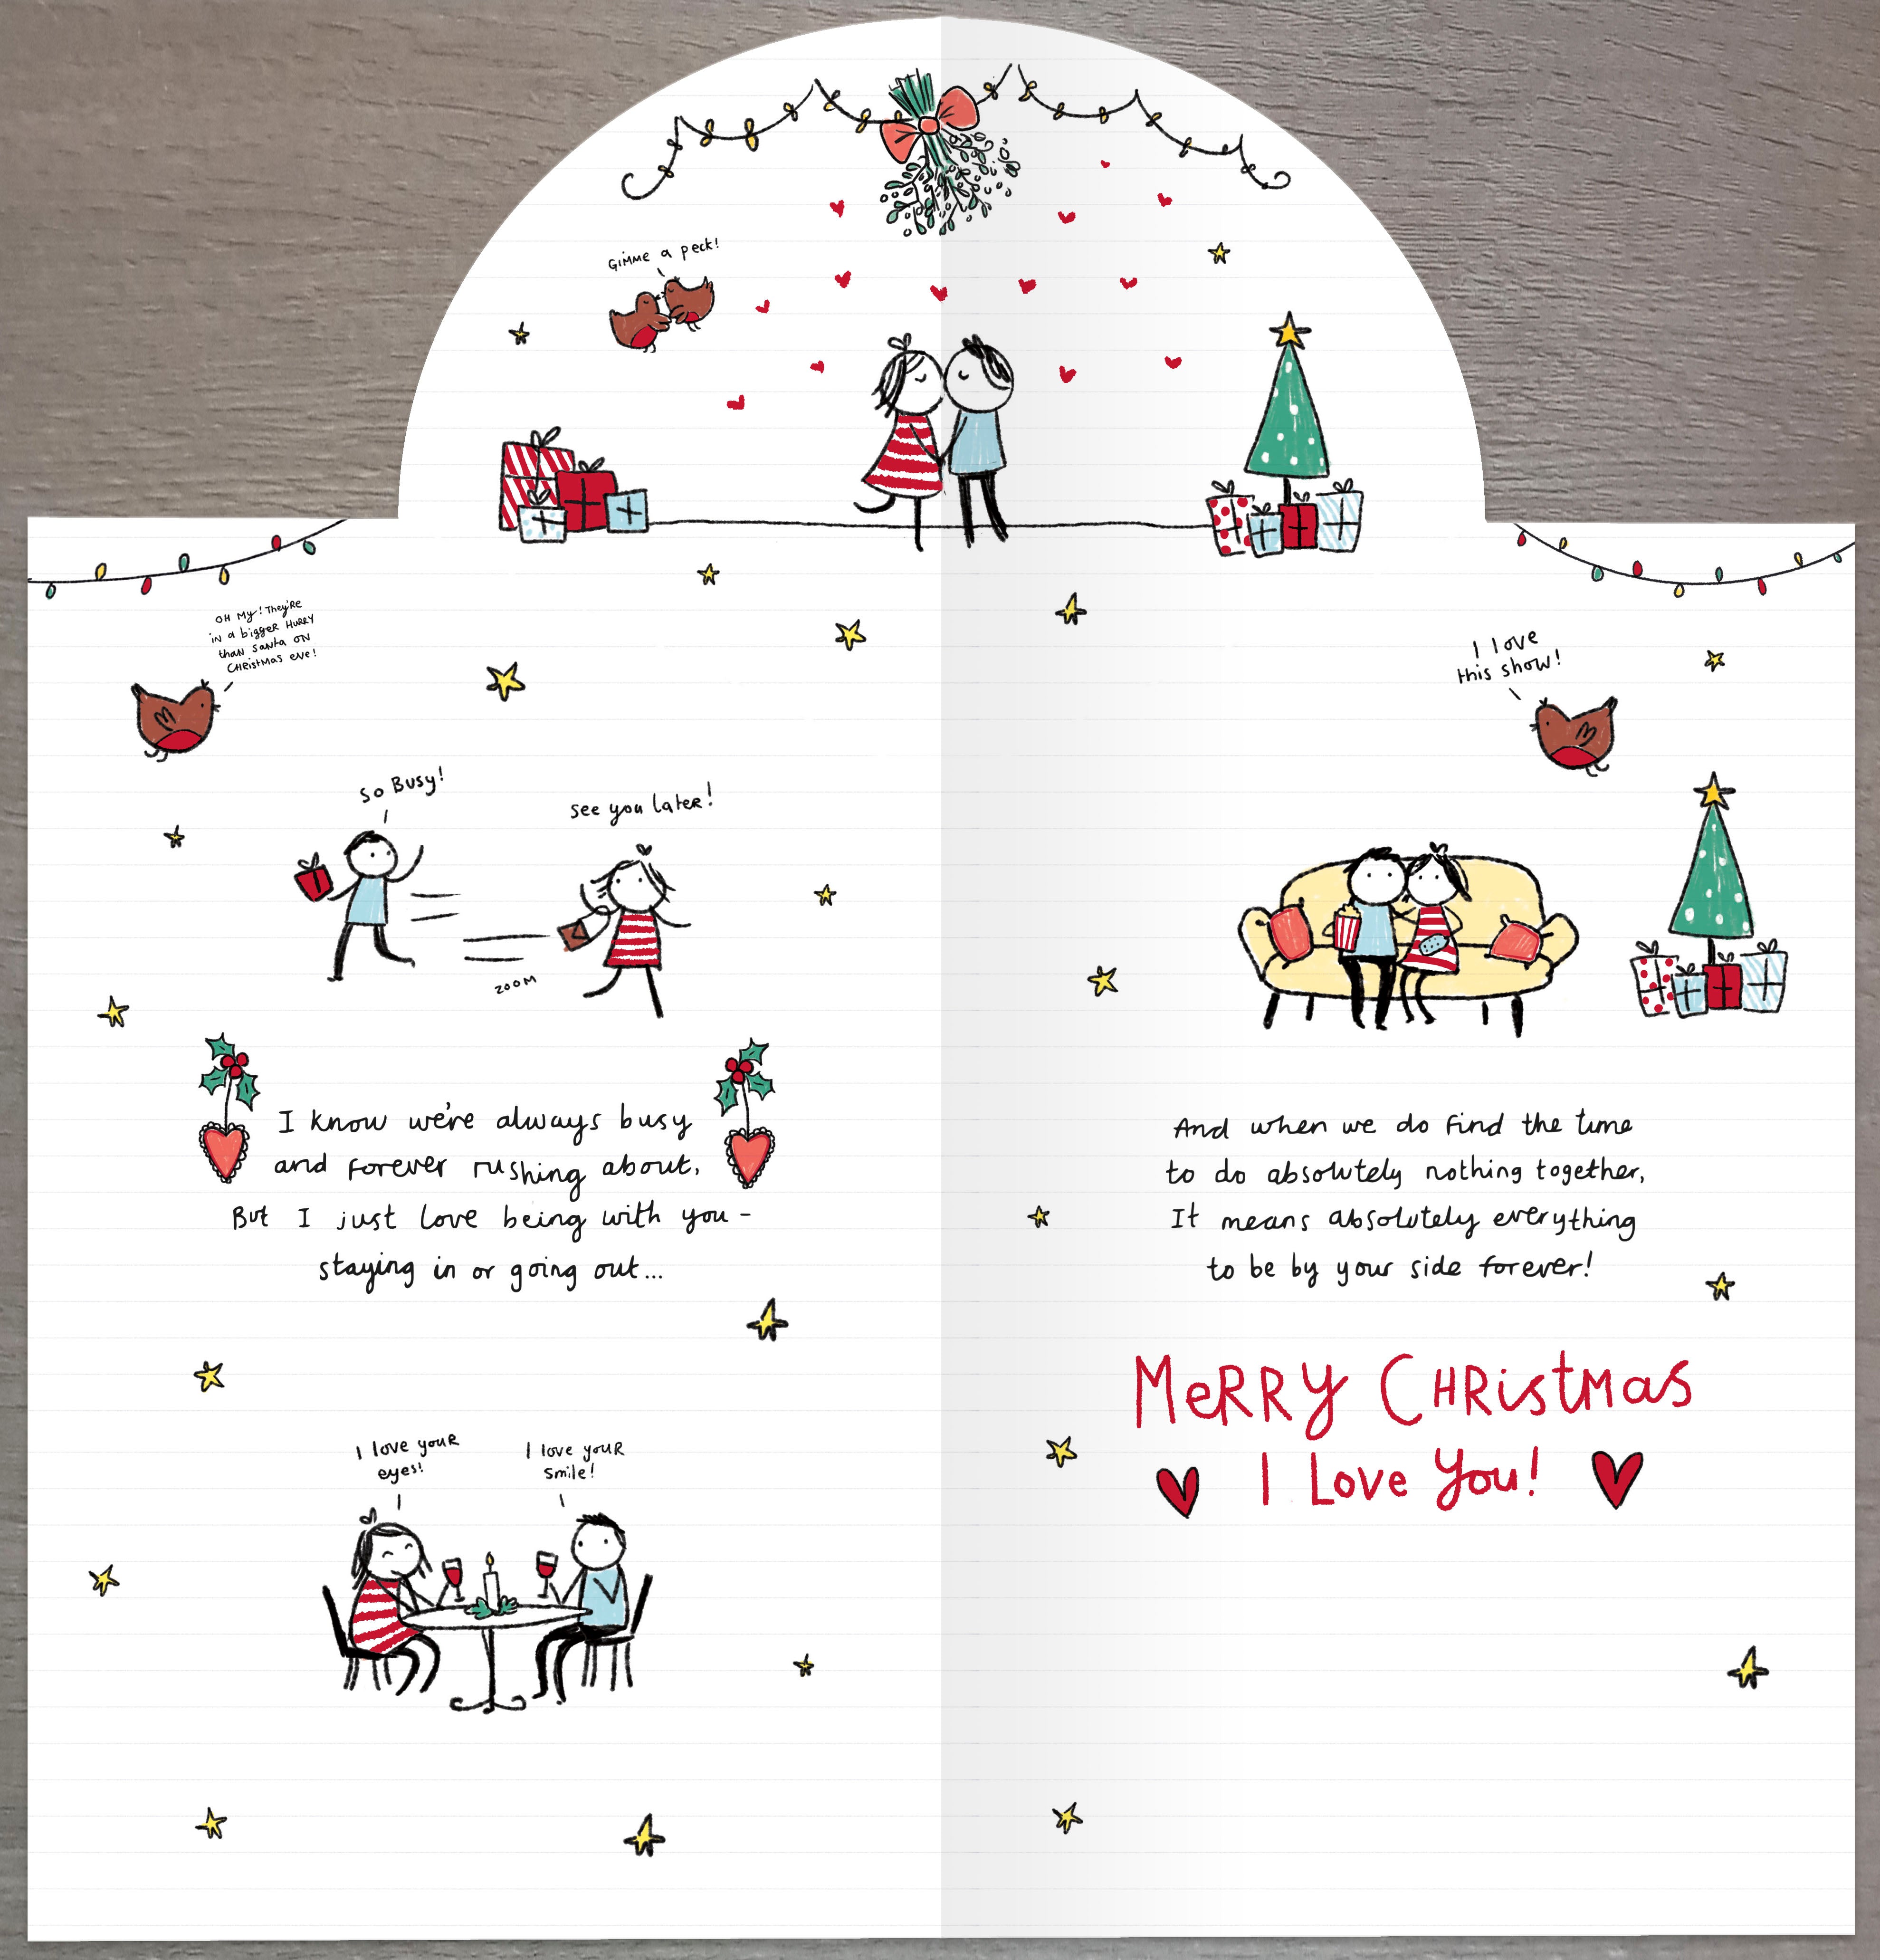 Gimme a peck!
OH My! They're
in a bigger Hurry
than Santa on
Christmas eve!
So Busy!
see you later!
zoom
I know we're always busy
and forever rushing about,
But I just love being with you -
staying in or going out...
I love your
eyes!
I love your
smile!
I love
this show!
And when we do find the time
to do absolutely nothing together,
It means absolutely everything
to be by your side forever!
Merry Christmas
I Love You!